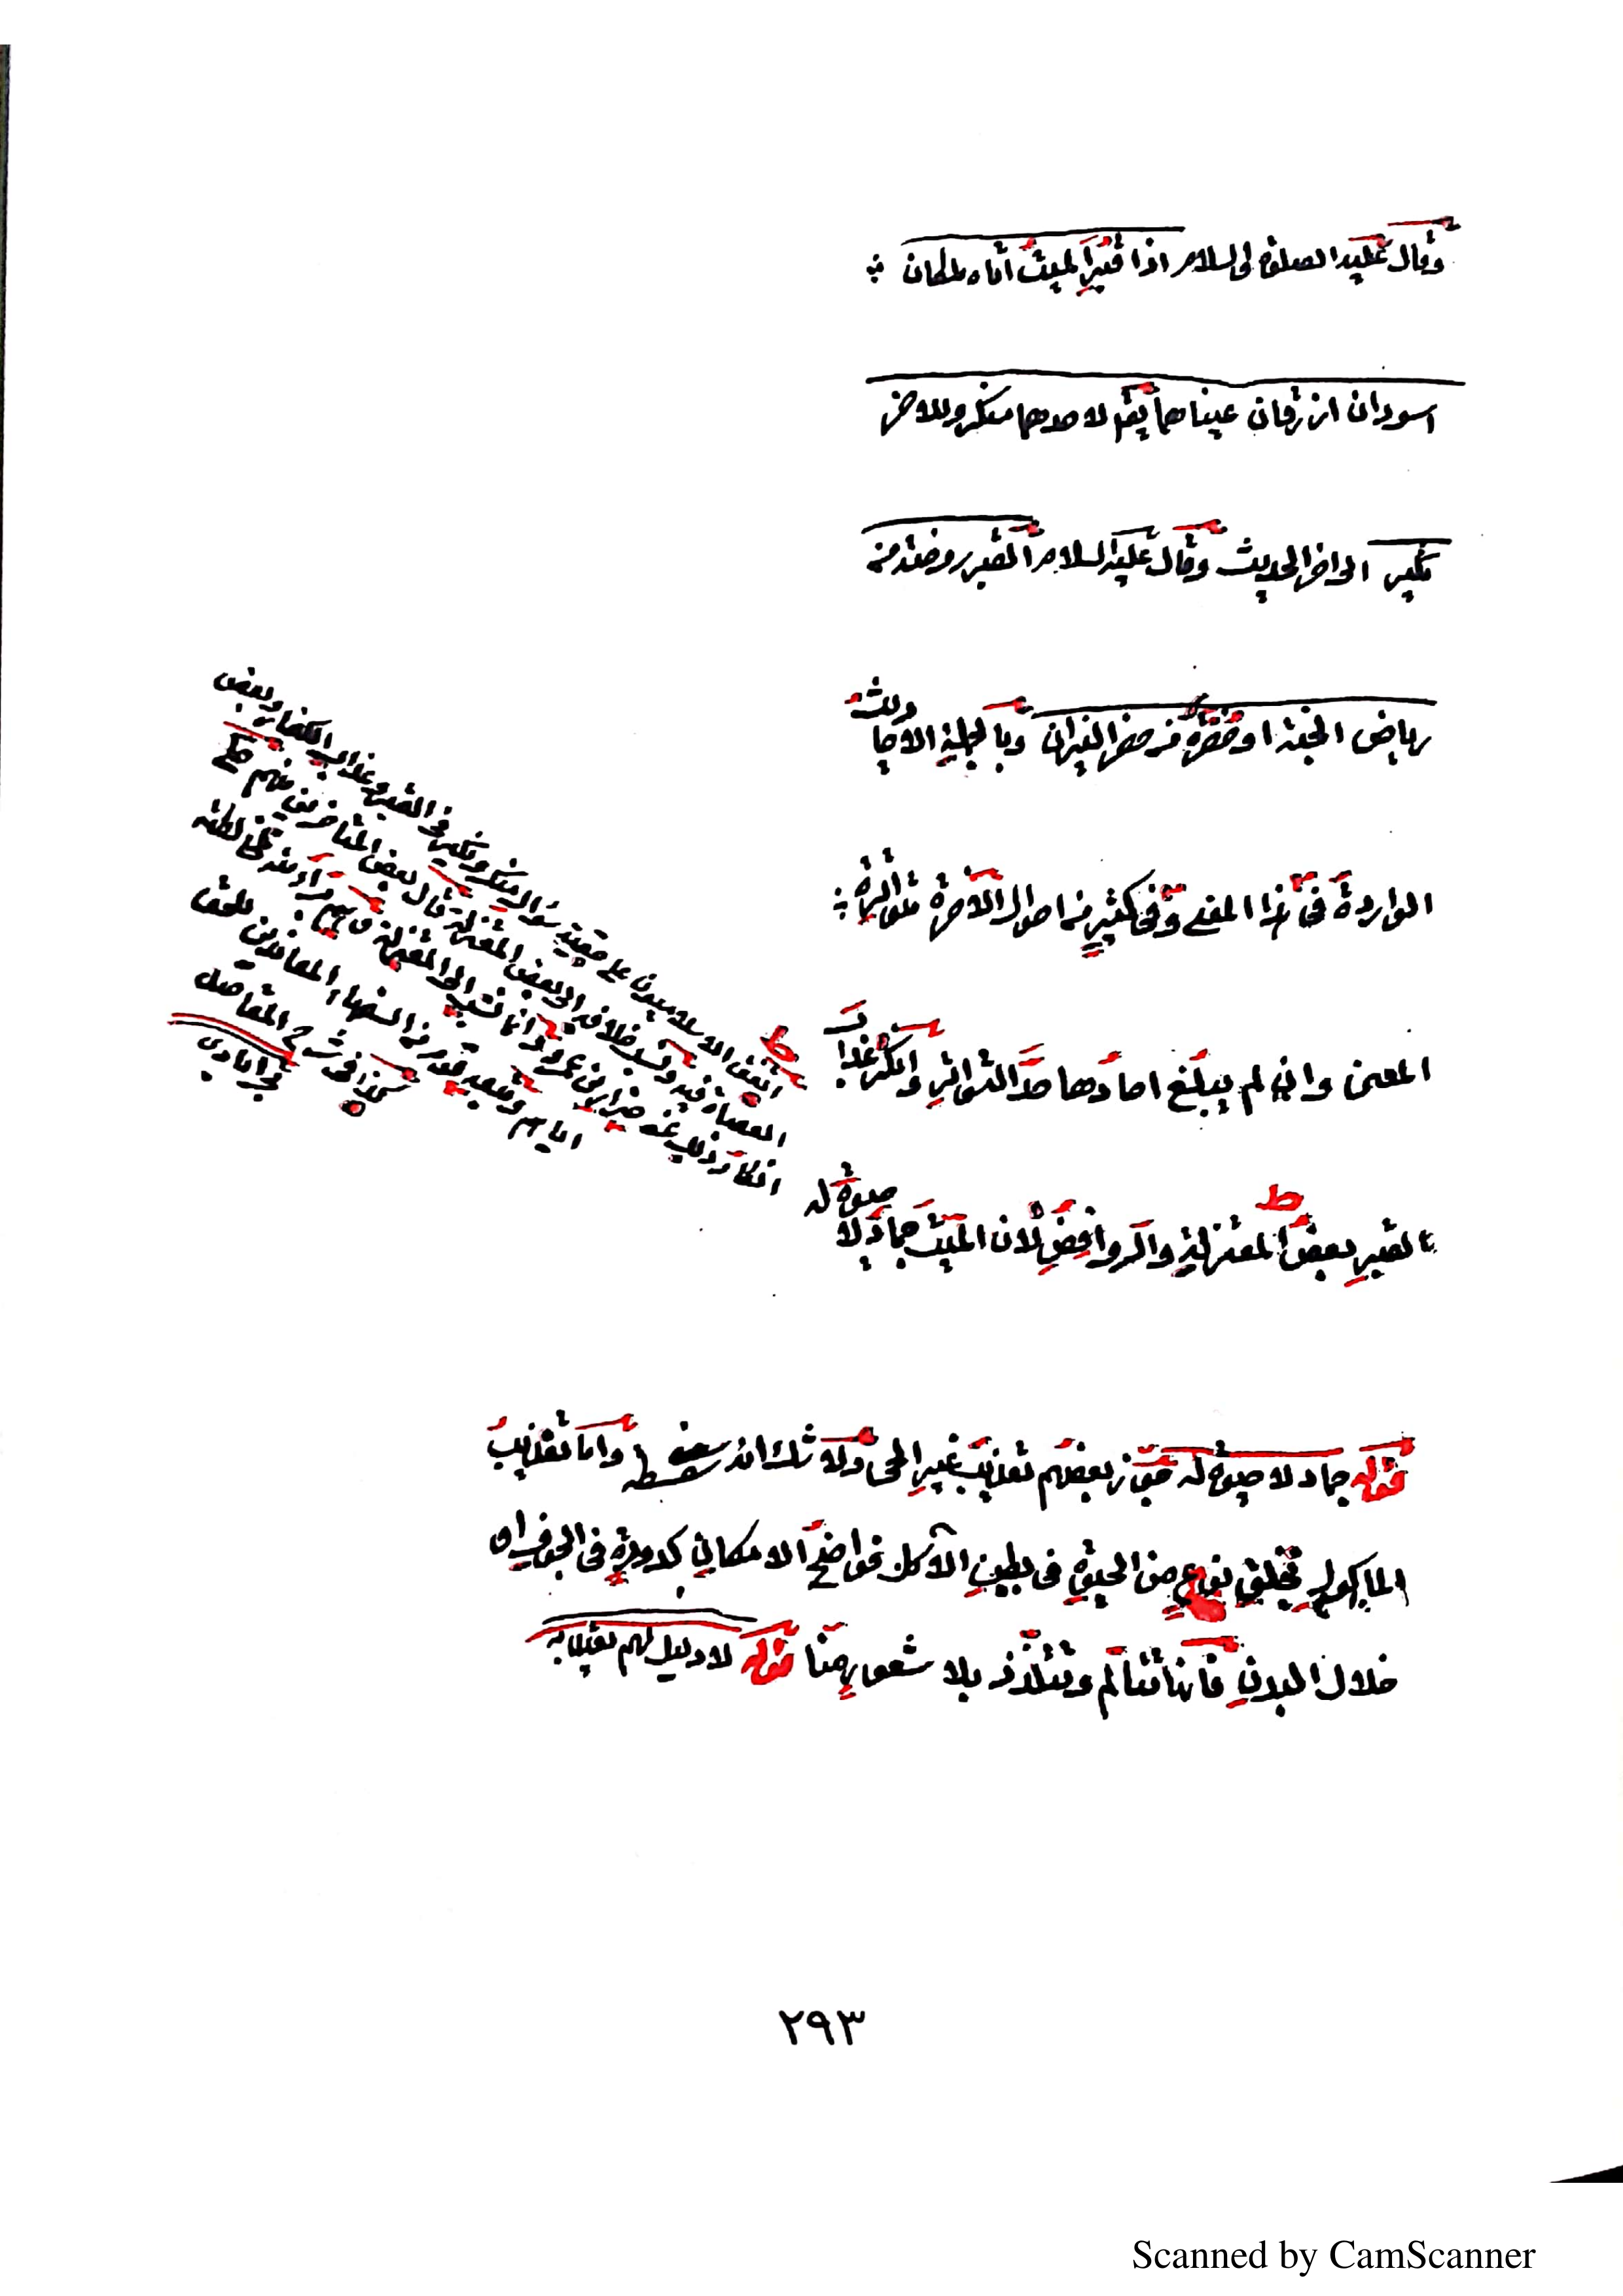 وقال عليه الصلوة والسلام اذا قبر الميت أتاه ملكان
اسودان ازرقان عيناهما يقم لاحدهما منكر وللاخر
نكير الى اخر الحديث وقال عليه السلام القبر روضة من
رياض الجنة او حفرة من حفر النيران وبالجملة الاحاديث
الواردة فى هذا المعنى وفى كثير من احوال الآخرة متواترة
المعنى وان لم يبلغ احادها حد التواتر وانكر عذاب
القبر بعض المعتزلة والروافض لان الميت جماد لا حيوة له
اتفق الاسلاميون على حقية سؤال منكر ونكير فى القبر وعذاب الكفار وبعض
العصاة فيه ونسب خلافه الى بعض المعتزلة قال بعض المتأخرين منهم حكى
انكار ذلك عن ضرار بن عمرو وانما نسب الى المعتزلة وهم برآء منه لمخالطة ضرار
اياهم وتبعه قوم من السفهاء المعاندين للحق
كذا فى شرح المقاصد
قوله جماد لا حيوة له جوز بعضهم تعذيب غير الحى ولا شك انه سفسطة واما تعذيب
المأكول بخلق نوع من الحيوة فى بطن الآكل فواضح الامكان كدودة فى الجوف او
خلال البدن فانها تتألم وتتلذذ بلا شعور منا قوله لا دليل لهم يعتد به
٢٩٣
Scanned by CamScanner